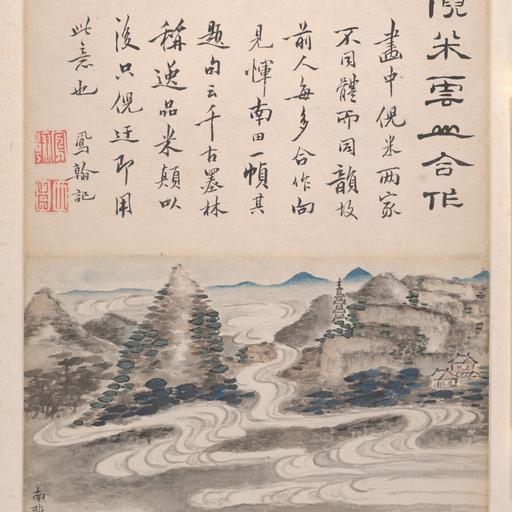 倪米雲山合作
畫中倪米兩家
不同體而同韻故
前人每多合作向
見惲南田一幀其
題句云千古墨林
稱逸品米顛以
後只倪迂即用
此意也 鳳翰記
南